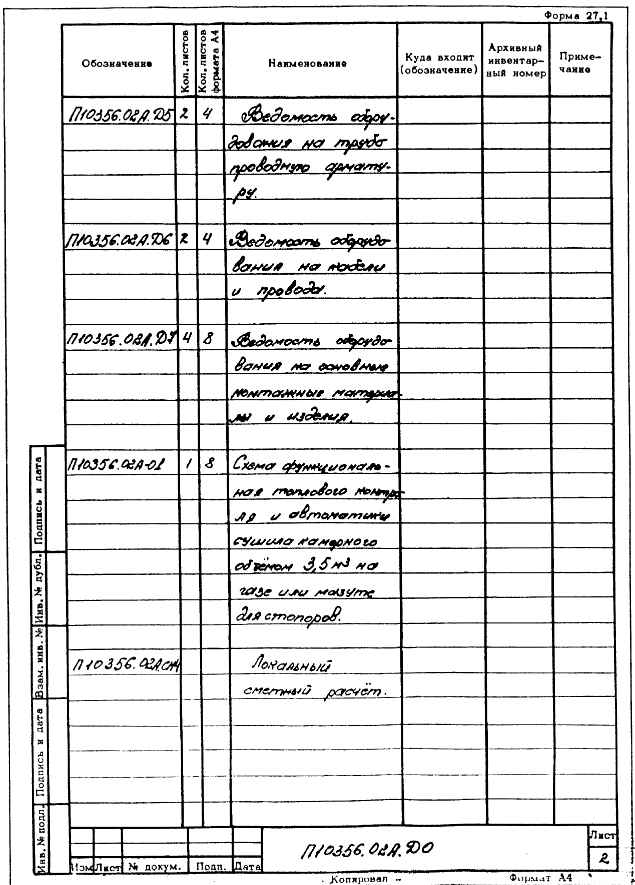 Форма 27,1
Обозначение
Кол. листов
Кол. листов формата А4
Наименование
Куда входит (обозначение)
Архивный инвентар-ный номер
Приме-чание
П10356.02А.Д5 2 4 Ведомость обору-
дования на трубо
проводную армату-
ру.
П10356.02А.Д6 2 4 Ведомость оборудо
вания на кабели
и провода.
П10356.02А.Д7 4 8 Ведомость оборудо
вания на основные
монтажные материа-
лы и изделия.
П10356.02А-01 1 8 Схема функциональ-
ная теплового контро
ля и автоматики
сушила камерного
объёмом 3,5 м³ на
газе или мазуте
для стопоров.
П10356.02А.СМ Локальный
сметный расчёт.
Подпись и дата
Инв. № дубл.
Взам. инв. №
Подпись и дата
Инв. № подл.
Изм Лист № докум. Подп. Дата
П10356.02А.Д0
Лист
2
Копировал -
Формат А4